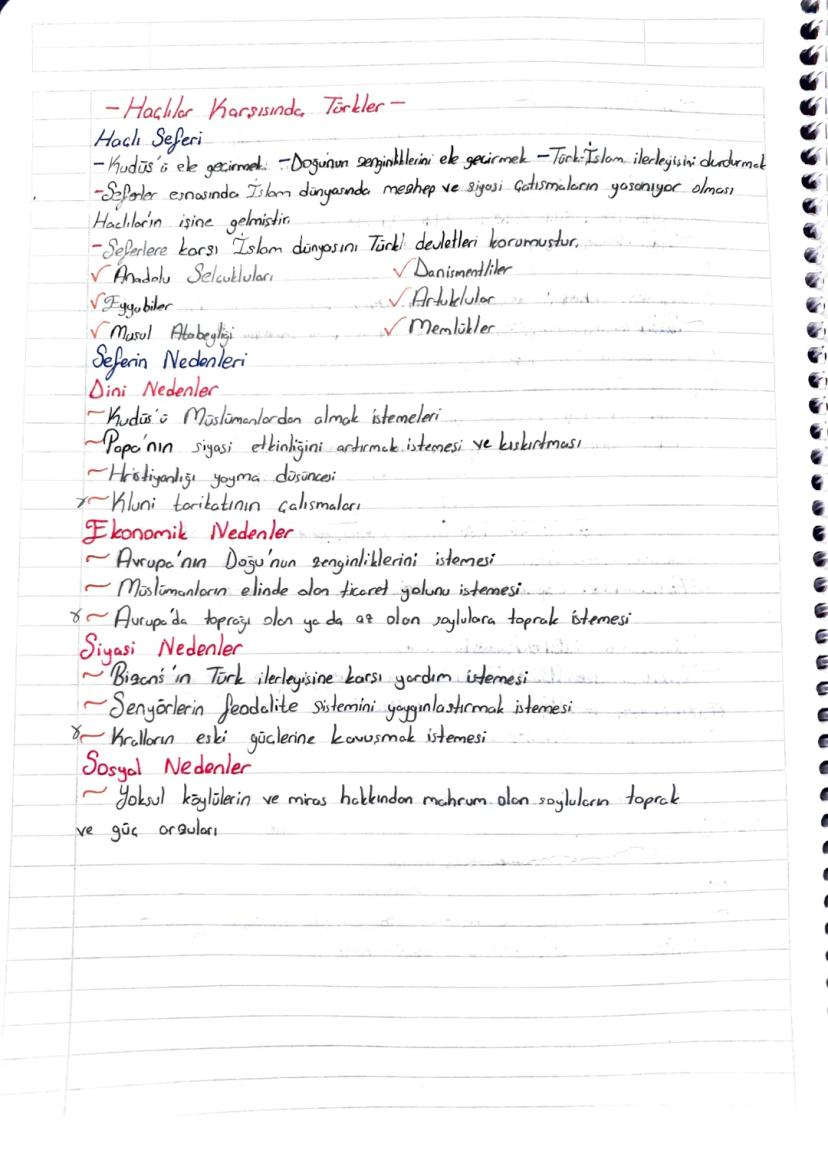 - Haçlılar Karşısında Türkler -
Haçlı Seferi
- Kudüs'ü ele geçirmek - Doğunun zenginliklerini ele geçirmek - Türk-İslam ilerleyişini durdurmak
- Seferler esnasında İslam dünyasında mezhep ve siyasi çatışmaların yaşanıyor olması
Haçlıların işine gelmiştir.
- Seferlere karşı İslam dünyasını Türk devletleri korumuştur.
✓ Anadolu Selçukluları ✓ Danişmentliler
✓ Eyyubiler ✓ Artuklular
✓ Musul Atabeyliği ✓ Memlükler
Seferin Nedenleri
Dini Nedenler
~ Kudüs'ü Müslümanlardan almak istemeleri
~ Papa'nın siyasi etkinliğini artırmak istemesi ve kışkırtması
~ Hristiyanlığı yayma düşüncesi
~ Kluni tarikatının çalışmaları
Ekonomik Nedenler
~ Avrupa'nın Doğu'nun zenginliklerini istemesi
~ Müslümanların elinde olan ticaret yolunu istemesi
~ Avrupa'da toprağı olan ya da az olan soylulara toprak istemesi
Siyasi Nedenler
~ Bizans'ın Türk ilerleyişine karşı yardım istemesi
~ Senyörlerin feodalite sistemini yaygınlaştırmak istemesi
~ Kralların eski güçlerine kavuşmak istemesi
Sosyal Nedenler
~ Yoksul köylülerin ve miras hakkından mahrum olan soyluların toprak
ve güç arzuları